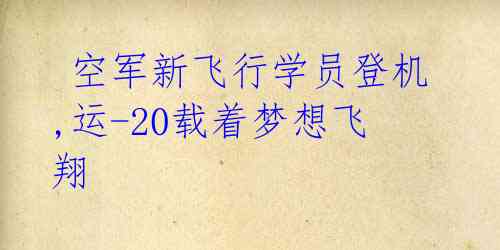 空军新飞行学员登机
,运-20载着梦想飞
翔